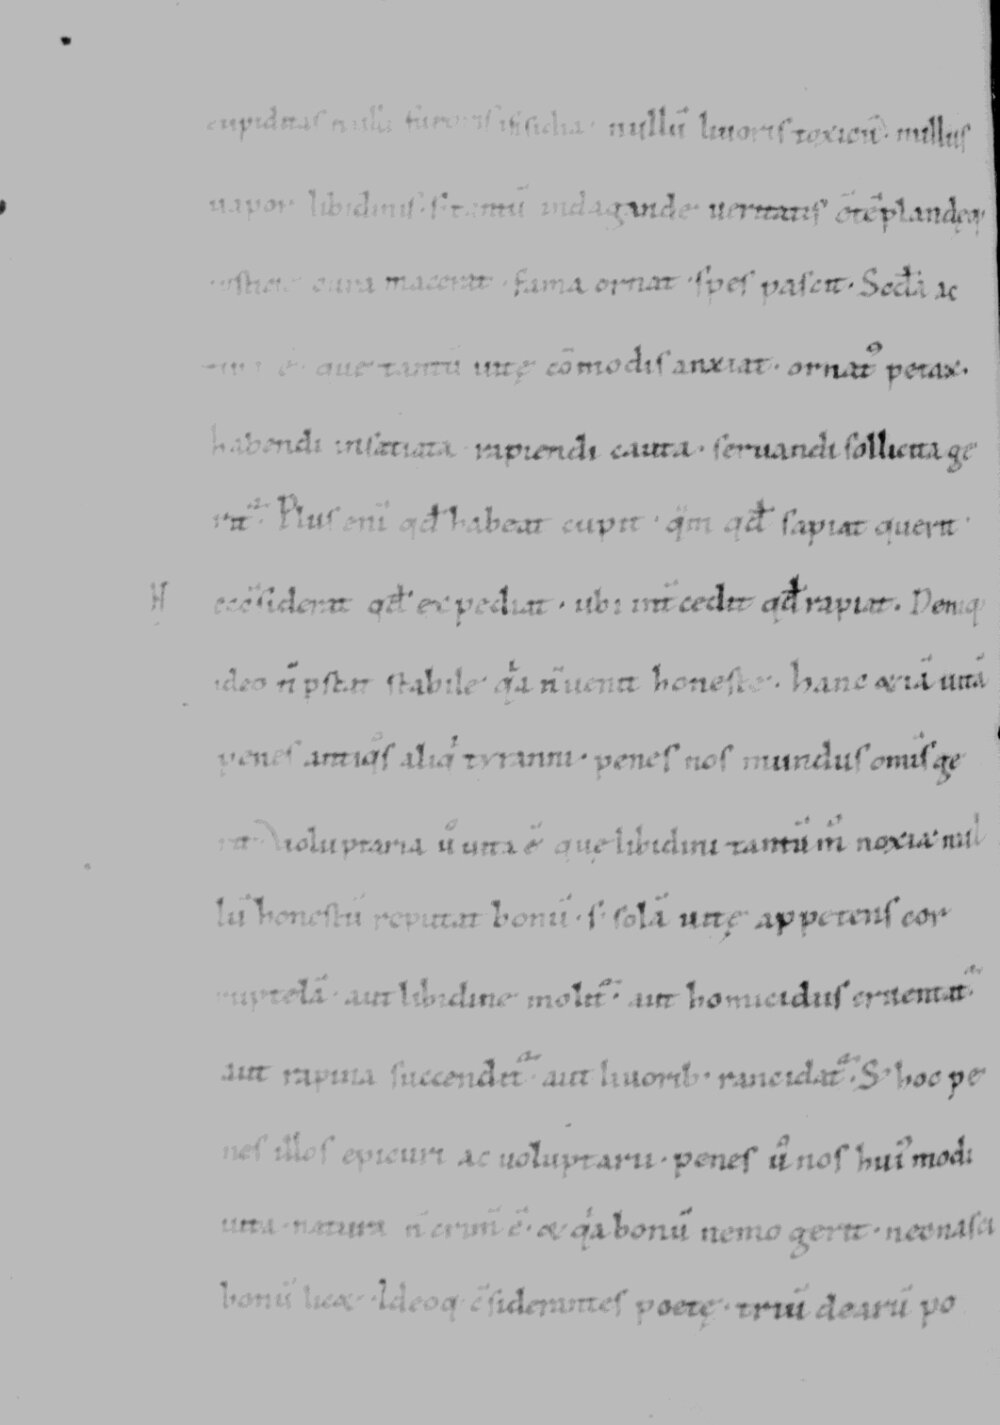 cupiditas nulla furoris insidia · nullū liuoris toxicū · nullus
uapor libidinis · s· tantū indagande ueritatis c̄tēplandęq
iusticie cura macerat · fama ornat · spes pascit · Scd̄a ac
tiua ē · que tantū uitę cōmodis anxiat · ornatꝰ petax ·
habendi insatiata · rapiendi cauta · seruandi sollicita ge
rit᷑ · Plus eni̅ qđ habeat cupit · qͣm qđ sapiat querit ·
N ec c̄siderat qđ expediat · ubi int̄cedit qđ rapiat . Deniq
ideo n̄ pstat stabile · qͥa n̄ uenit honeste · hanc &iā uitā
penes antiqͦs aliqͥ tyranni · penes nos mundus om̄is ge
rit · Voluptaria u̾ uita ē que libidini tantū m̊ noxia nul
lū honestū reputat bonū · s· solā uitę appetens cor
ruptelā · aut libidine mollit᷑ · aut homicidus cruentat᷑
aut rapina succendit᷑ · aut liuorib· rancidat᷑ · S· hoc pe
nes illos epicuri ac uoluptarii · penes u̾ nos huiꝰmodi
uita · natura n̄ crim̄ ē · & qͥa bonū nemo gerit · nec nasci
bonū lic& · Ideoq c̄siderantes poetę · triū dearū po